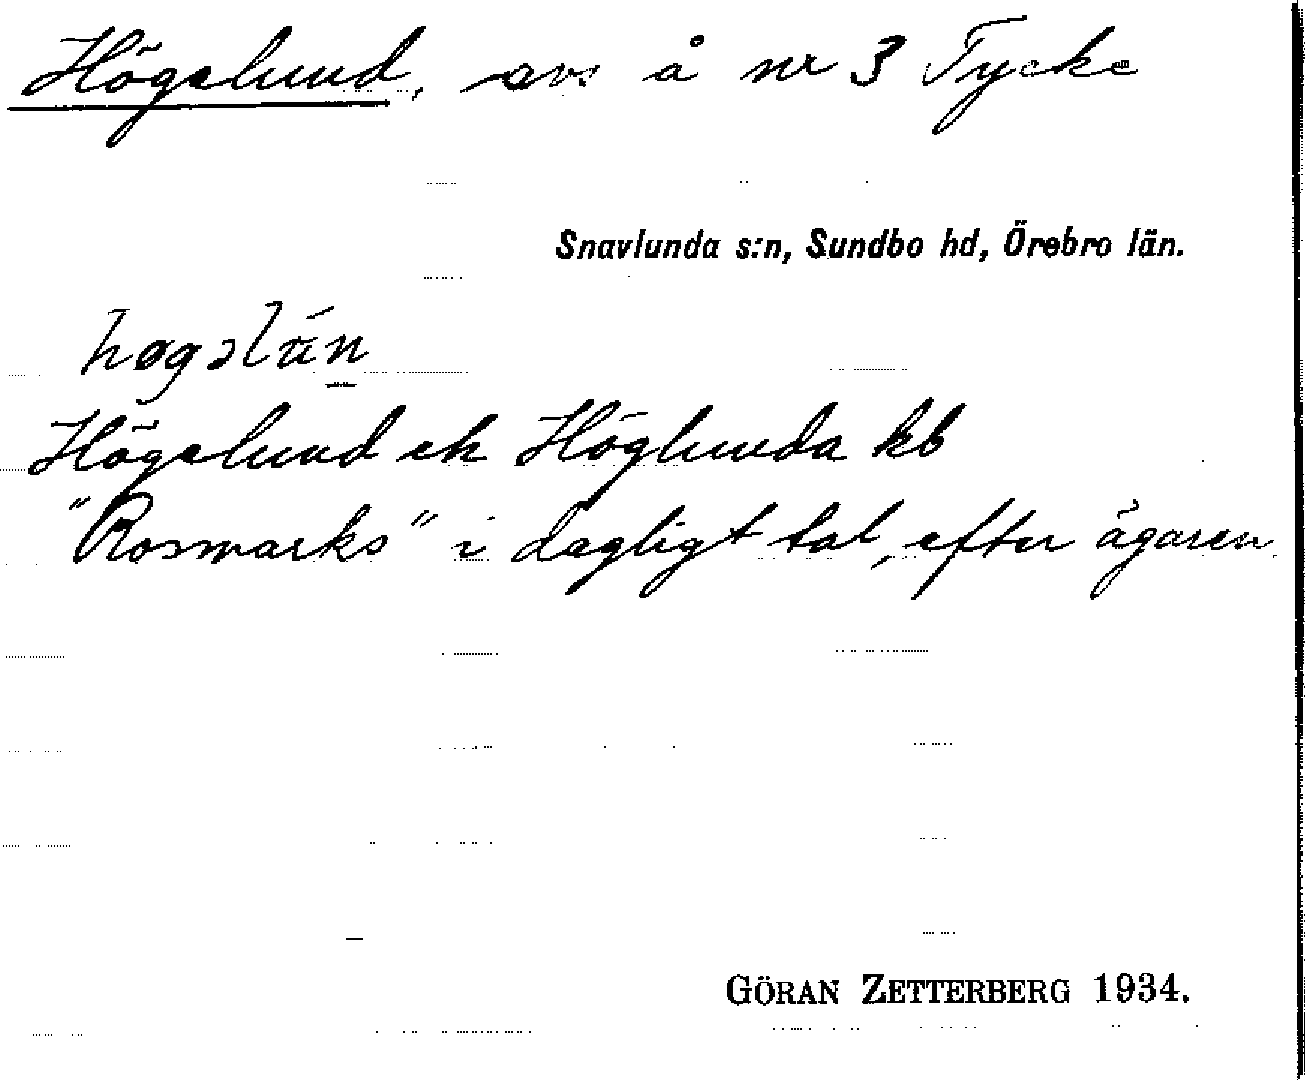 Högelund, avs å nr 3 Tycke
Snavlunda s:n, Sundbo hd, Örebro län.
Högelund ek Höglunda kb
"Rosmarks" i dagligt tal, efter ägaren
GÖRAN ZETTERBERG 1934.